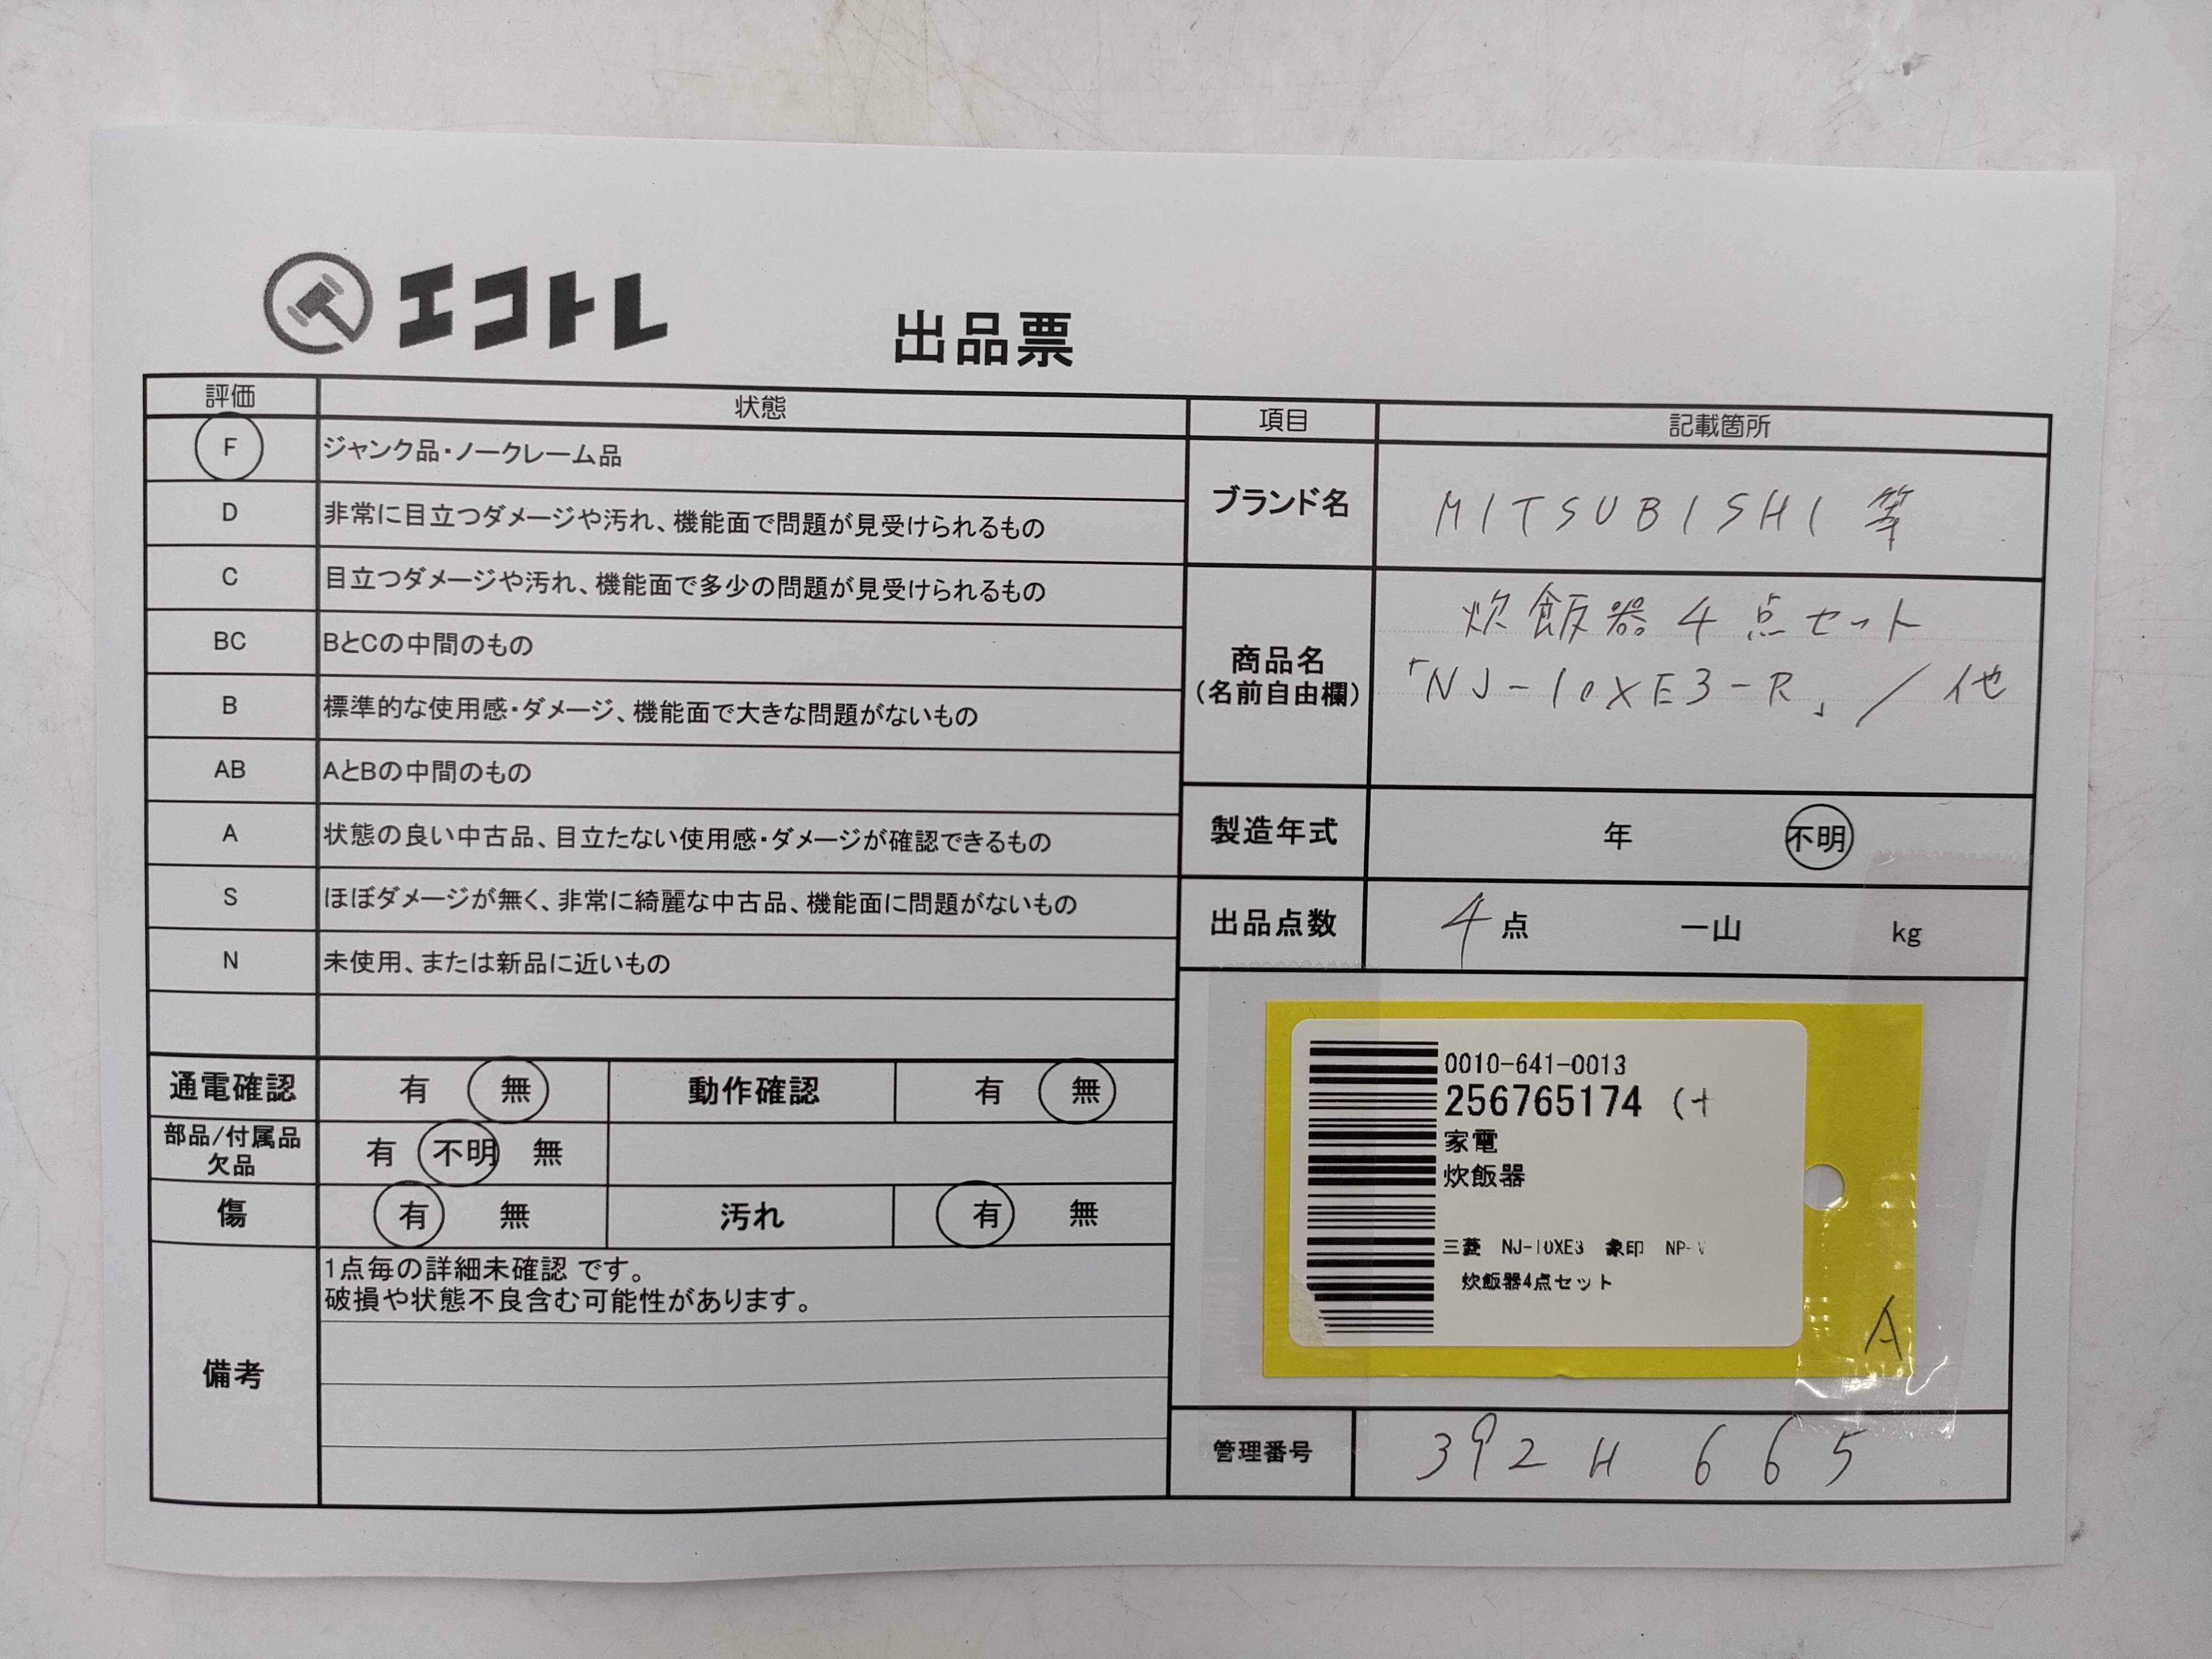 エコトレ
出品票
評価 状態
F ジャンク品・ノークレーム品
D 非常に目立つダメージや汚れ、機能面で問題が見受けられるもの
C 目立つダメージや汚れ、機能面で多少の問題が見受けられるもの
BC BとCの中間のもの
B 標準的な使用感・ダメージ、機能面で大きな問題がないもの
AB AとBの中間のもの
A 状態の良い中古品、目立たない使用感・ダメージが確認できるもの
S ほぼダメージが無く、非常に綺麗な中古品、機能面に問題がないもの
N 未使用、または新品に近いもの
通電確認 有 無 動作確認 有 無
部品/付属品
欠品 有 不明 無
傷 有 無 汚れ 有 無
備考
1点毎の詳細未確認 です。
破損や状態不良含む可能性があります。
項目 記載箇所
ブランド名 MITSUBISHI 等
商品名
(名前自由欄)
炊飯器4点セット
「NJ-10XE3-R」/他
製造年式 年 不明
出品点数 4点 一山 kg
0010-641-0013
256765174
家電
炊飯器
三菱 NJ-10XE3 象印 NP-
炊飯器4点セット
A
管理番号 392H 665